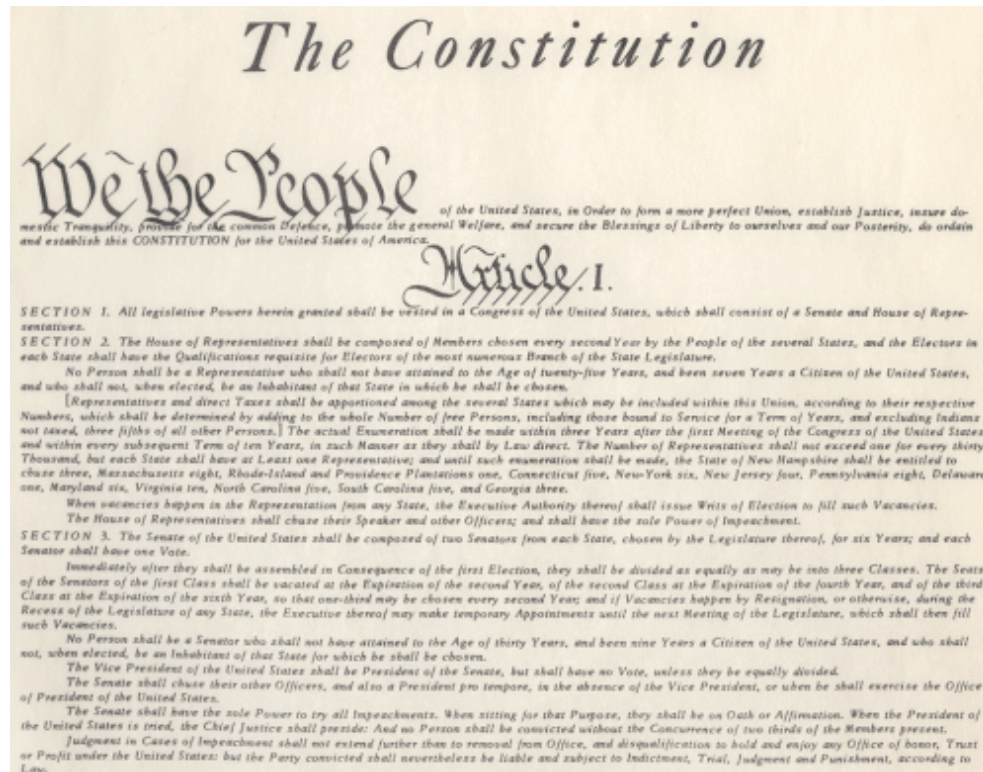 The Constitution
We the People
of the United States, in Order to form a more perfect Union, establish Justice, insure do-
mestic Tranquility, provide for the common Defence, promote the general Welfare, and secure the Blessings of Liberty to ourselves and our Posterity, do ordain
and establish this CONSTITUTION for the United States of America.
Article. I.
SECTION 1. All legislative Powers herein granted shall be vested in a Congress of the United States, which shall consist of a Senate and House of Repre-
sentatives.
SECTION 2. The House of Representatives shall be composed of Members chosen every second Year by the People of the several States, and the Electors in
each State shall have the Qualifications requisite for Electors of the most numerous Branch of the State Legislature.
No Person shall be a Representative who shall not have attained to the Age of twenty-five Years, and been seven Years a Citizen of the United States,
and who shall not, when elected, be an Inhabitant of that State in which he shall be chosen.
[Representatives and direct Taxes shall be apportioned among the several States which may be included within this Union, according to their respective
Numbers, which shall be determined by adding to the whole Number of free Persons, including those bound to Service for a Term of Years, and excluding Indians
not taxed, three fifths of all other Persons.] The actual Enumeration shall be made within three Years after the first Meeting of the Congress of the United States
and within every subsequent Term of ten Years, in such Manner as they shall by Law direct. The Number of Representatives shall not exceed one for every thirty
Thousand, but each State shall have at Least one Representative; and until such enumeration shall be made, the State of New Hampshire shall be entitled to
chuse three, Massachusetts eight, Rhode-Island and Providence Plantations one, Connecticut five, New-York six, New Jersey four, Pennsylvania eight, Delaware
one, Maryland six, Virginia ten, North Carolina five, South Carolina five, and Georgia three.
When vacancies happen in the Representation from any State, the Executive Authority thereof shall issue Writs of Election to fill such Vacancies.
The House of Representatives shall chuse their Speaker and other Officers; and shall have the sole Power of Impeachment.
SECTION 3. The Senate of the United States shall be composed of two Senators from each State, chosen by the Legislature thereof, for six Years; and each
Senator shall have one Vote.
Immediately after they shall be assembled in Consequence of the first Election, they shall be divided as equally as may be into three Classes. The Seats
of the Senators of the first Class shall be vacated at the Expiration of the second Year, of the second Class at the Expiration of the fourth Year, and of the third
Class at the Expiration of the sixth Year, so that one-third may be chosen every second Year; and if Vacancies happen by Resignation, or otherwise, during the
Recess of the Legislature of any State, the Executive thereof may make temporary Appointments until the next Meeting of the Legislature, which shall then fill
such Vacancies.
No Person shall be a Senator who shall not have attained to the Age of thirty Years, and been nine Years a Citizen of the United States, and who shall
not, when elected, be an Inhabitant of that State for which he shall be chosen.
The Vice President of the United States shall be President of the Senate, but shall have no Vote, unless they be equally divided.
The Senate shall chuse their other Officers, and also a President pro tempore, in the absence of the Vice President, or when he shall exercise the Office
of President of the United States.
The Senate shall have the sole Power to try all Impeachments. When sitting for that Purpose, they shall be on Oath or Affirmation. When the President of
the United States is tried, the Chief Justice shall preside: And no Person shall be convicted without the Concurrence of two thirds of the Members present.
Judgment in Cases of Impeachment shall not extend further than to removal from Office, and disqualification to hold and enjoy any Office of honor, Trust
or Profit under the United States: but the Party convicted shall nevertheless be liable and subject to Indictment, Trial, Judgment and Punishment, according to
Law.